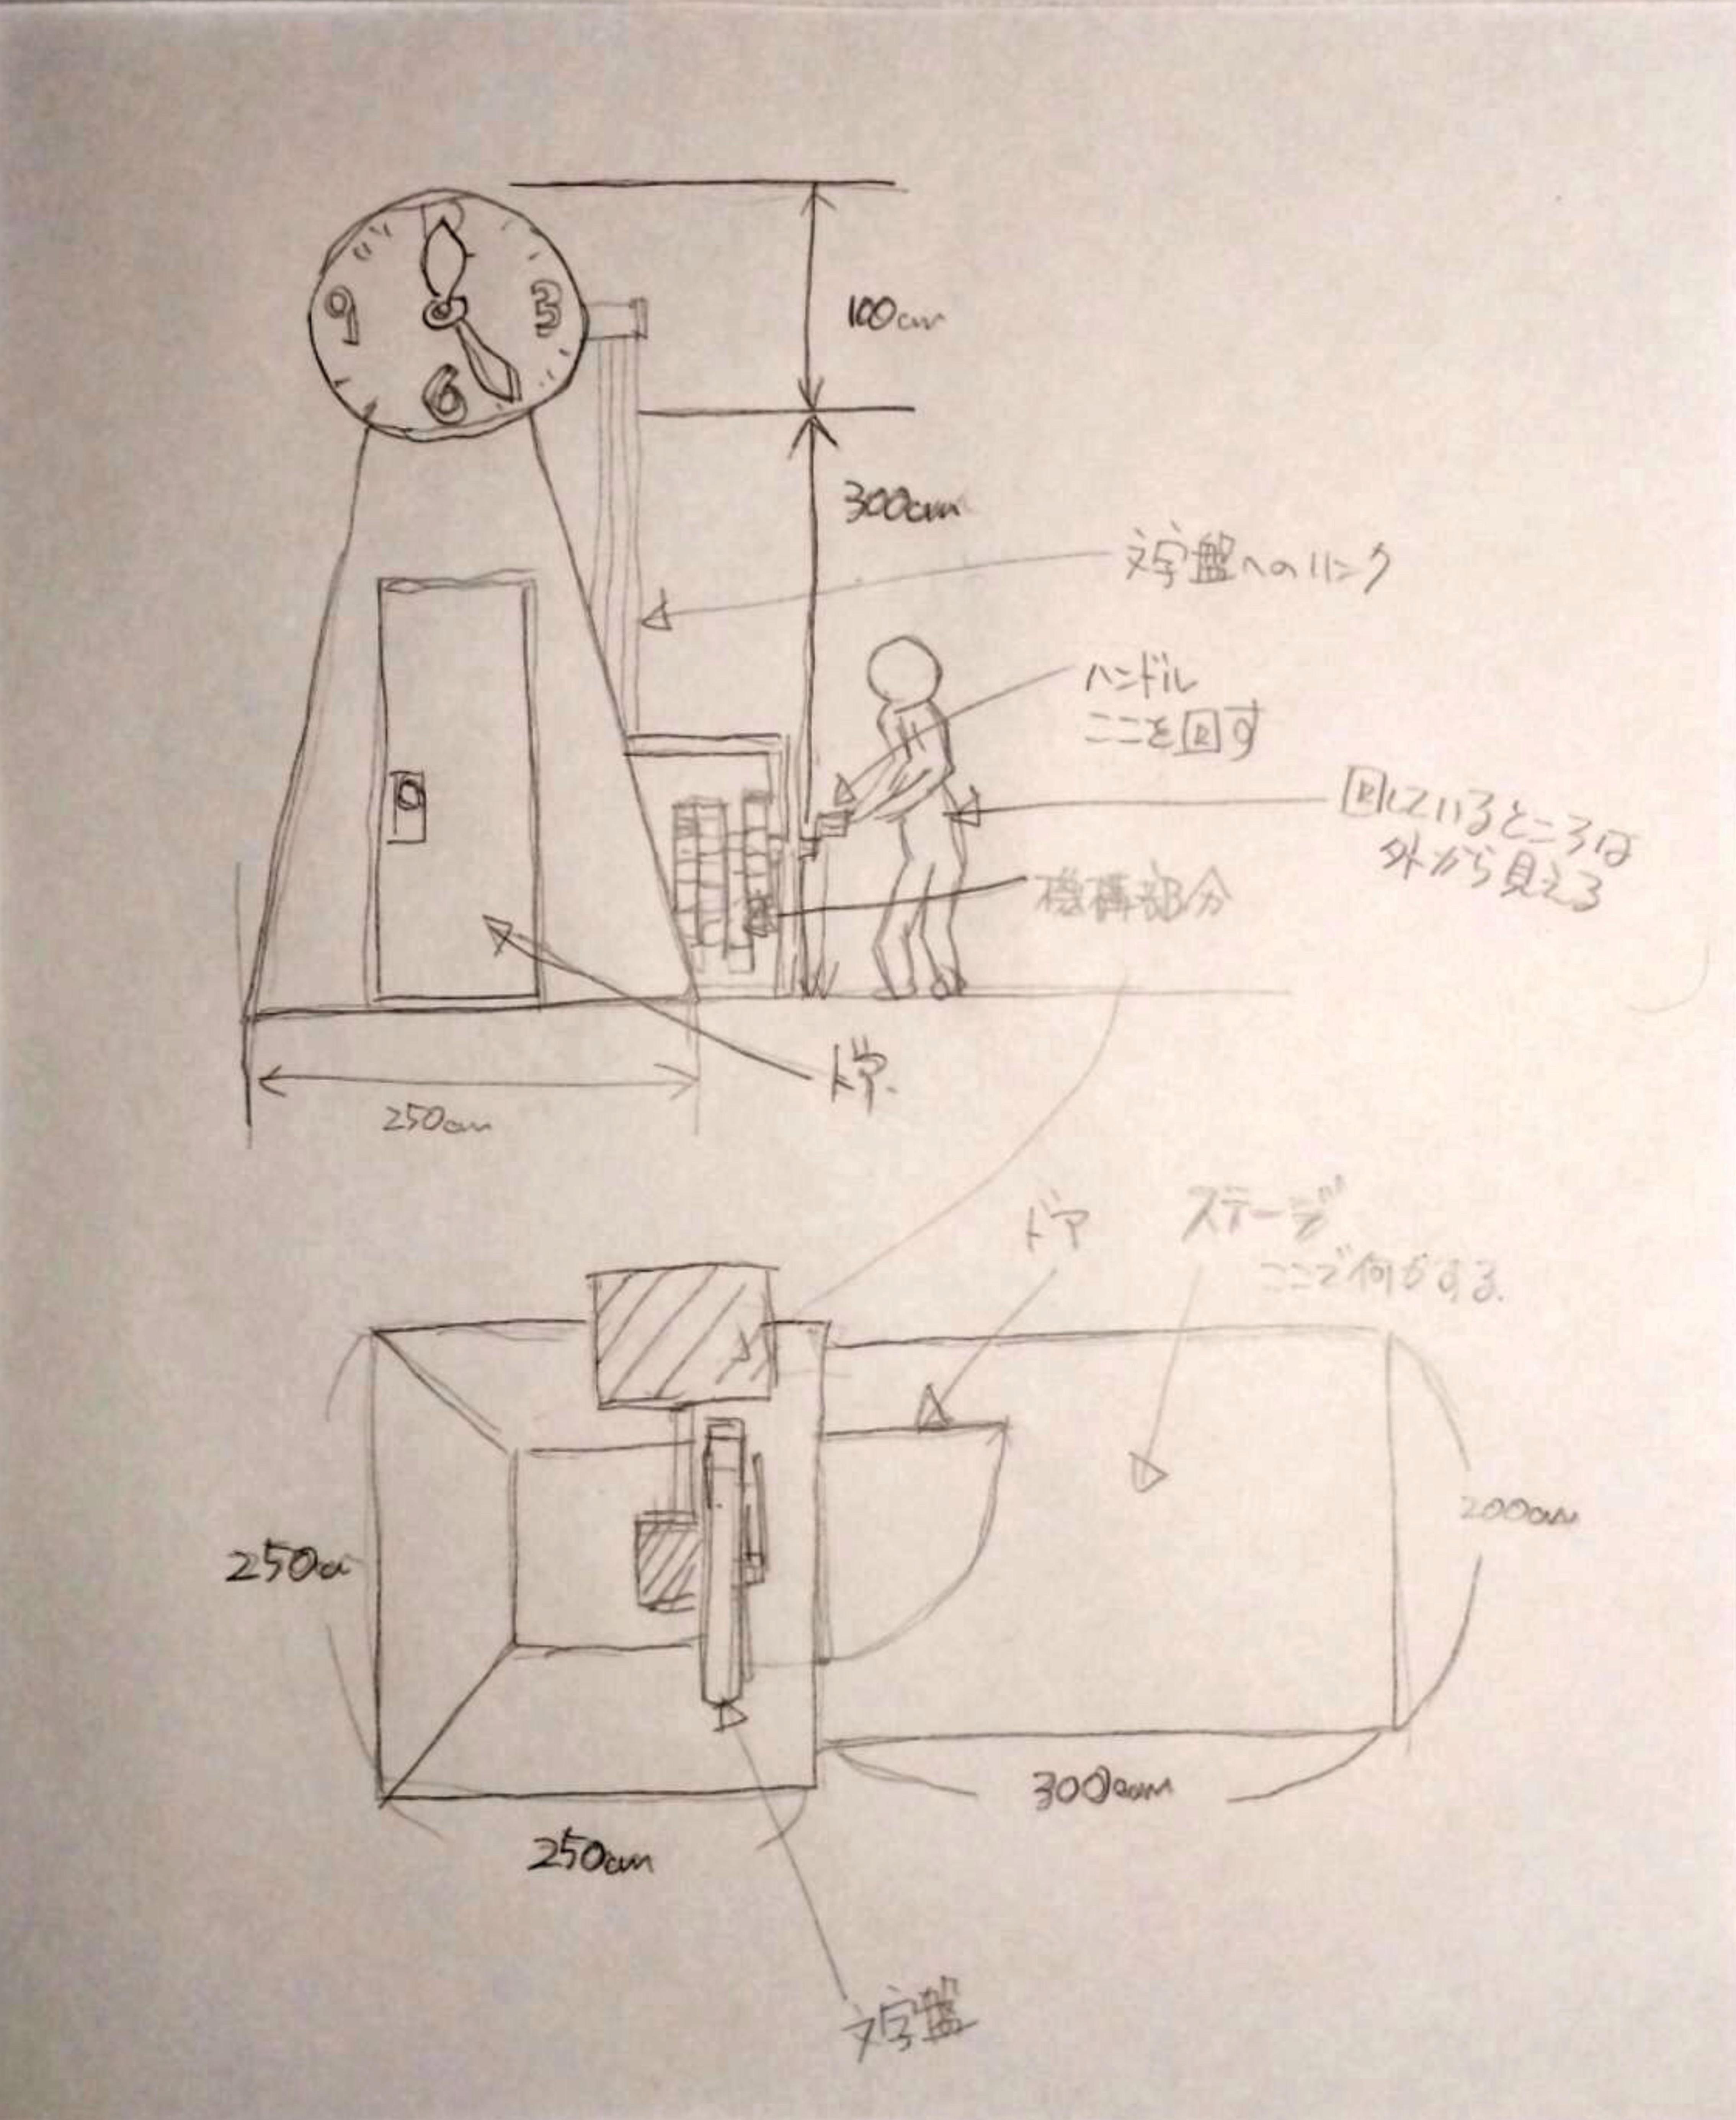 9
3
6
100cm
300cm
文字盤へのリンク
ハンドル
ここを回す
回しているところは
外から見える
機構部分
ドア
250cm
ドア
ステージ
ここで何かする
250cm
200cm
300cm
250cm
文字盤